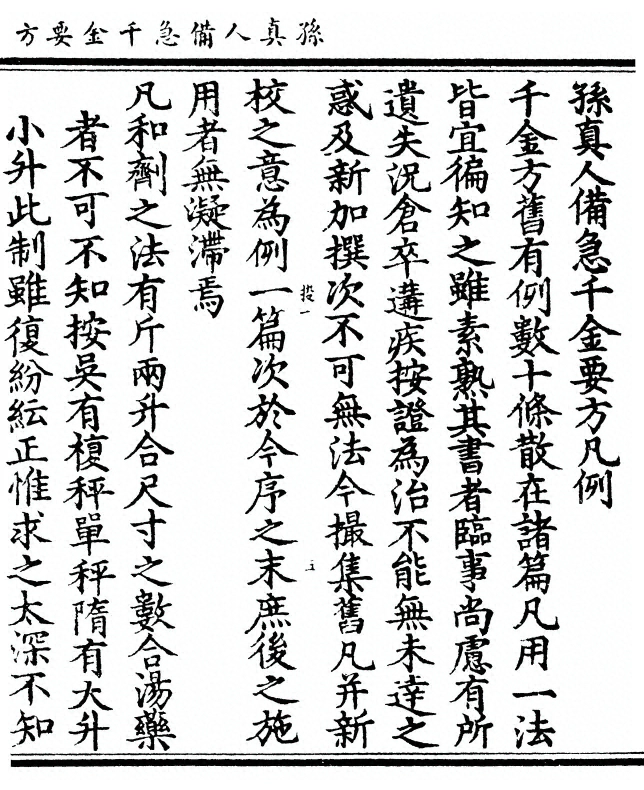 孫真人備急千金要方
孫真人備急千金要方凡例
千金方舊有例數十條散在諸篇凡用一法
皆宜徧知之雖素熟其書者臨事尚慮有所
遺失況倉卒遘疾按證為治不能無未達之
惑及新加撰次不可無法今撮集舊凡并新
校之意為例一篇次於今序之末庶後之施
用者無凝滯焉
凡和劑之法有斤兩升合尺寸之數合湯藥
者不可不知按吳有複秤單秤隋有大升
小升此制雖復紛紜正惟求之太深不知